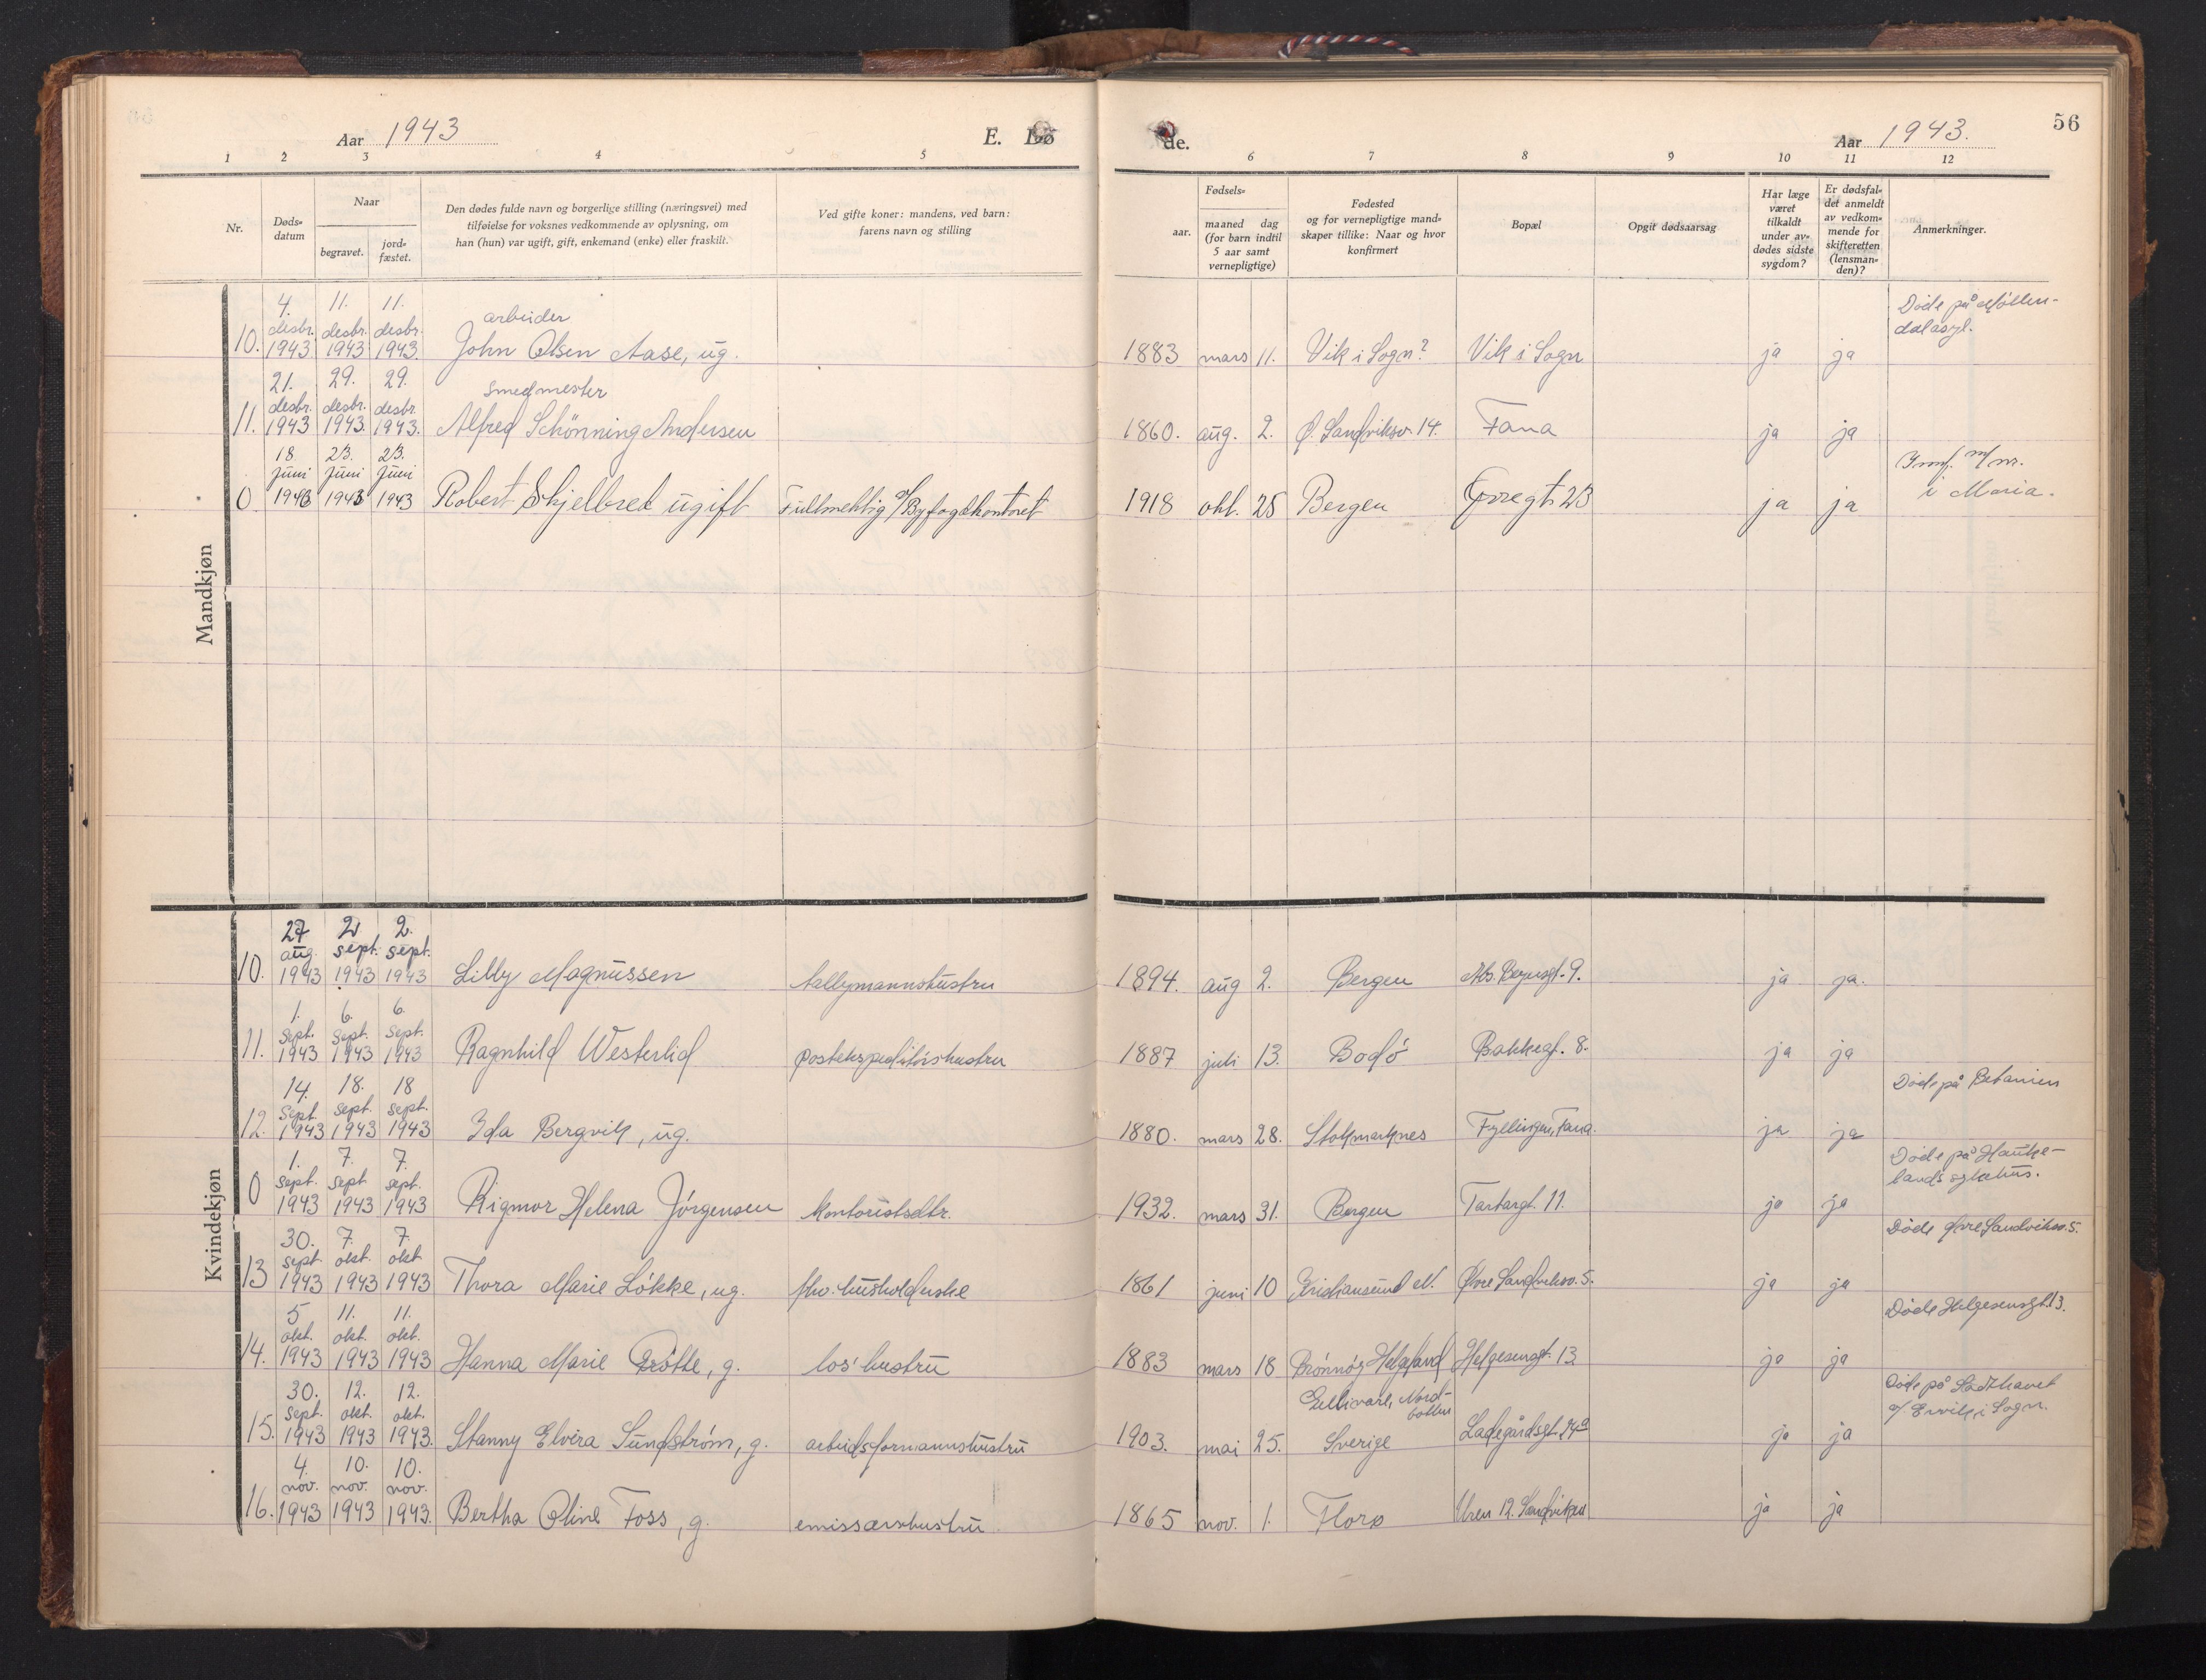 Aar 1943
E. Dø
de.
Aar 1943.
56
1 2 3 4 5 6 7 8 9 10 11 12
Nr.
Døds-
datum
Naar
begravet.
jord-
fæstet.
Den dødes fulde navn og borgerlige stilling (næringsvei) med
tilføielse for voksnes vedkommende av oplysning, om
han (hun) var ugift, gift, enkemand (enke) eller fraskilt.
Ved gifte koner: mandens, ved barn:
farens navn og stilling
Fødsels-
aar.
maaned dag
(for barn indtil
5 aar samt
vernepligtige)
Fødested
og for vernepligtige mand-
skaper tillike: Naar og hvor
konfirmert
Bopæl
Opgit dødsaarsag
Har læge
været
tilkaldt
under av-
dødes sidste
sygdom?
Er dødsfal-
det anmeldt
av vedkom-
mende for
skifteretten
(lensman-
den)?
Anmerkninger.
Mandkjøn
4. 11. 11. arbeider Døde på Möllen-
desbr. desbr. desbr. dalasyl.
10. 1943 1943 1943. John Olsen Aase, ug. 1883 mars 11. Vik i Sogn? Vik i Sogn ja ja
21. 29. 29. smedmester
desbr. desbr. desbr.
11. 1943 1943. 1943. Alfred Schönning Andersen 1860. aug. 2. Ø. Sandviksv. 14. Fana ja ja
18 23. 23.
juni juni juni m/ nr.
0 1943 1943 1943 Robert Skjelbred ugift Fullmektig v/Byfogdkontoret 1918 okt. 25 Bergen Øvregt. 23 ja ja i Maria.
Kvindekjøn
27 2 2.
aug. sept. sept.
10. 1943 1943 1943 Lilly Magnussen tallymannshustru 1894. aug 2. Bergen Abs. Beyersgt. 9. ja ja.
1. 6. 6.
Sept. Sept. Sept.
11. 1943 1943 1943 Ragnhild Westerlid postekspeditörshustru 1887 juli 13. Bodö Bakkegt. 8. ja ja
14. 18. 18 Døde på Betanien
Sept. Sept. sept.
12. 1943 1943 1943 Ida Bergvik, ug. 1880. mars 28. Stokmarknes Fyllingen, Fana. ja ja
1. 7. 7. Døde på Hauke-
sept. sept sept. lands sykehus.
0 1943 1943 1943 Rigmor Helena Jörgensen kontoristsdtr. 1932. mars 31. Bergen Tartargt. 11. ja ja
30. 7. 7. Døde Øvre Sandviksv. 5.
sept okt. okt
13 1943 1943 1943 Thora Marie Lökke, ug. fhv. husholderske 1861 juni 10 Kristiansund N. Øvre Sandviksv. 5. ja ja
5 11. 11. Døde Helgesensgt. 13.
okt. okt. okt.
14. 1943 1943 1943 Hanna Marie g. los' hustru 1883 mars 18 Brönnöy Helgeland Helgesensgt. 13 ja ja
30. 12. 12. Gellivare, Nord- Døde på
sept. okt. okt. botten i Sogn.
15. 1943 1943 1943. Stanny Elvira Sundström, g. arbeidsformannshustru 1903. mai 25. Sverige Ladegårdsgt. ja ja
4. 10. 10.
nov. nov. nov.
16. 1943 1943 1943. Bertha Oline Foss, g. emissærshustru. 1865 nov. 1. Florø Uren 12. Sandviken ja ja